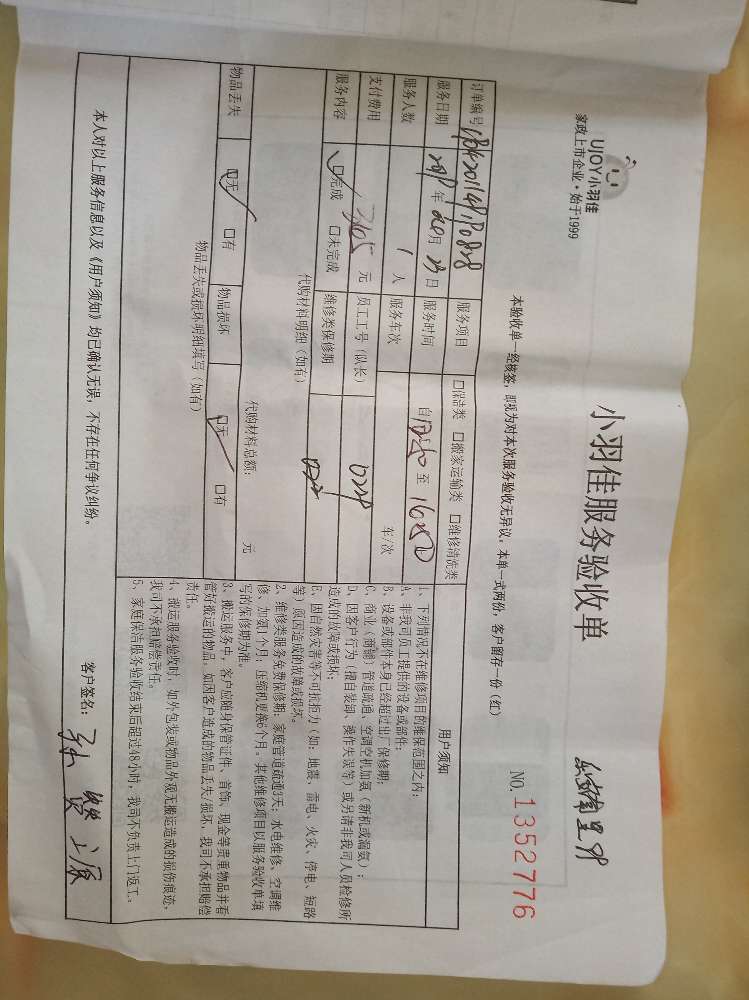 UJOY小羽佳
家政上市企业·始于1999
小羽佳服务验收单
NO.1352776
本验收单一经核签，即视为对本次服务验收无异议，本单一式两份，客户留存一份（红）
订单编号
服务项目 □保洁类 □搬家运输类 □维修清洗类
服务日期 年 月 日 服务时间 自 至
服务人数 1 人 服务车次 车/次
支付费用 元 员工工号（队长）
服务内容 □完成 □未完成 维修类保修期
代购材料明细（如有）
代购材料总额： 元
物品丢失 □无 □有 物品损坏 □无 □有
物品丢失或损坏明细填写（如有）
用户须知
1、下列情况不在维修项目的维保范围之内：
A、非我司员工提供的设备或部件；
B、设备或部件本身已经超过出厂保修期；
C、商业（商铺）管道疏通、空调空机加氨（新机或漏氨）；
D、因客户行为（擅自装卸、操作失误等）或另请非我司人员检修所
造成的故障或损坏；
E、因自然灾害等不可抗拒力（如：地震、雷电、火灾、停电、短路
等）原因造成的故障或损坏。
2、维修类服务免费保修期：家庭管道疏通3天；水电维修、空调维
修、加氨1个月；压缩机更换6个月。其他维修项目以服务验收单填
写的保修期为准。
3、搬运服务中，客户应随身保管证件、首饰、现金等贵重物品并看
管好搬运的物品，如因客户造成的物品丢失/损坏，我司不承担赔偿
责任。
4、搬运服务验收时，如外包装或物品外观无搬运造成的损伤痕迹，
我司不承担赔偿责任。
5、家庭保洁服务验收结束后超过48小时，我司不负责上门返工。
本人对以上服务信息以及《用户须知》均已确认无误，不存在任何争议纠纷。
客户签名：